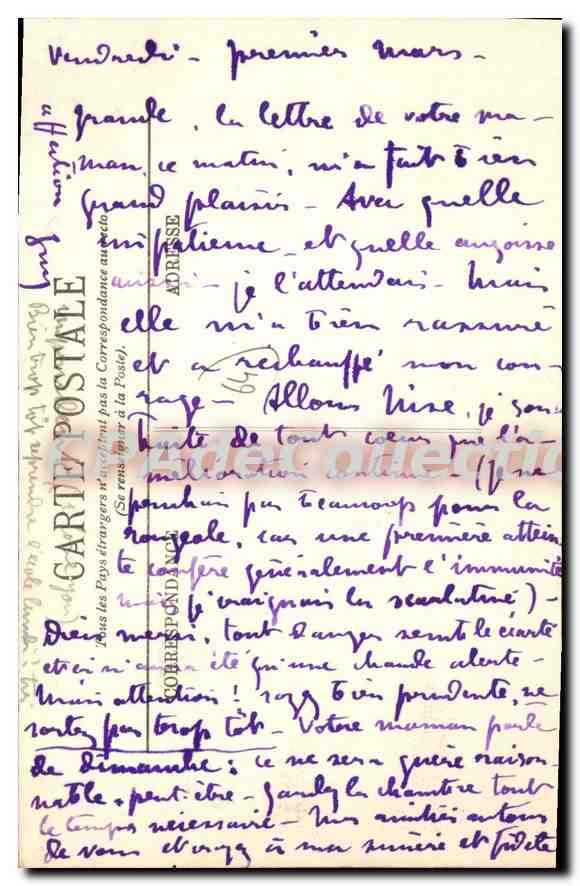 Vendredi - premier mars -
grande, la lettre de votre ma-
man, ce matin, m'a fait bien
grand plaisir - Avec quelle
impatience, et quelle angoisse
aussi - je l'attendais - Mais
elle m'a bien rassuré
et a réchauffé mon cou-
rage - Allons Nise, je sou-
haite de tout cœur que l'a-
mélioration continue - (Je ne
penchais pas beaucoup pour la
rougeole, car une première attein-
te confère généralement l'immunité
mais je craignais la scarlatine) -
Dieu merci, tout danger semble écarté
et ce n'aura été qu'une chaude alerte -
Mais attention ! soyez bien prudente, ne
sortez pas trop tôt - Votre maman parle
de dimanche : ce ne sera guère raison-
nable, peut-être - Gardez la chambre tout
le temps nécessaire - Mes amitiés autour
de vous et croyez à ma sincère et fidèle
affection Guy
Bien trop tôt reprendre l'école lundi :
CARTE POSTALE
Tous les Pays étrangers n'acceptent pas la Correspondance au recto
(Se renseigner à la Poste).
CORRESPONDANCE
ADRESSE
64
CPACollection